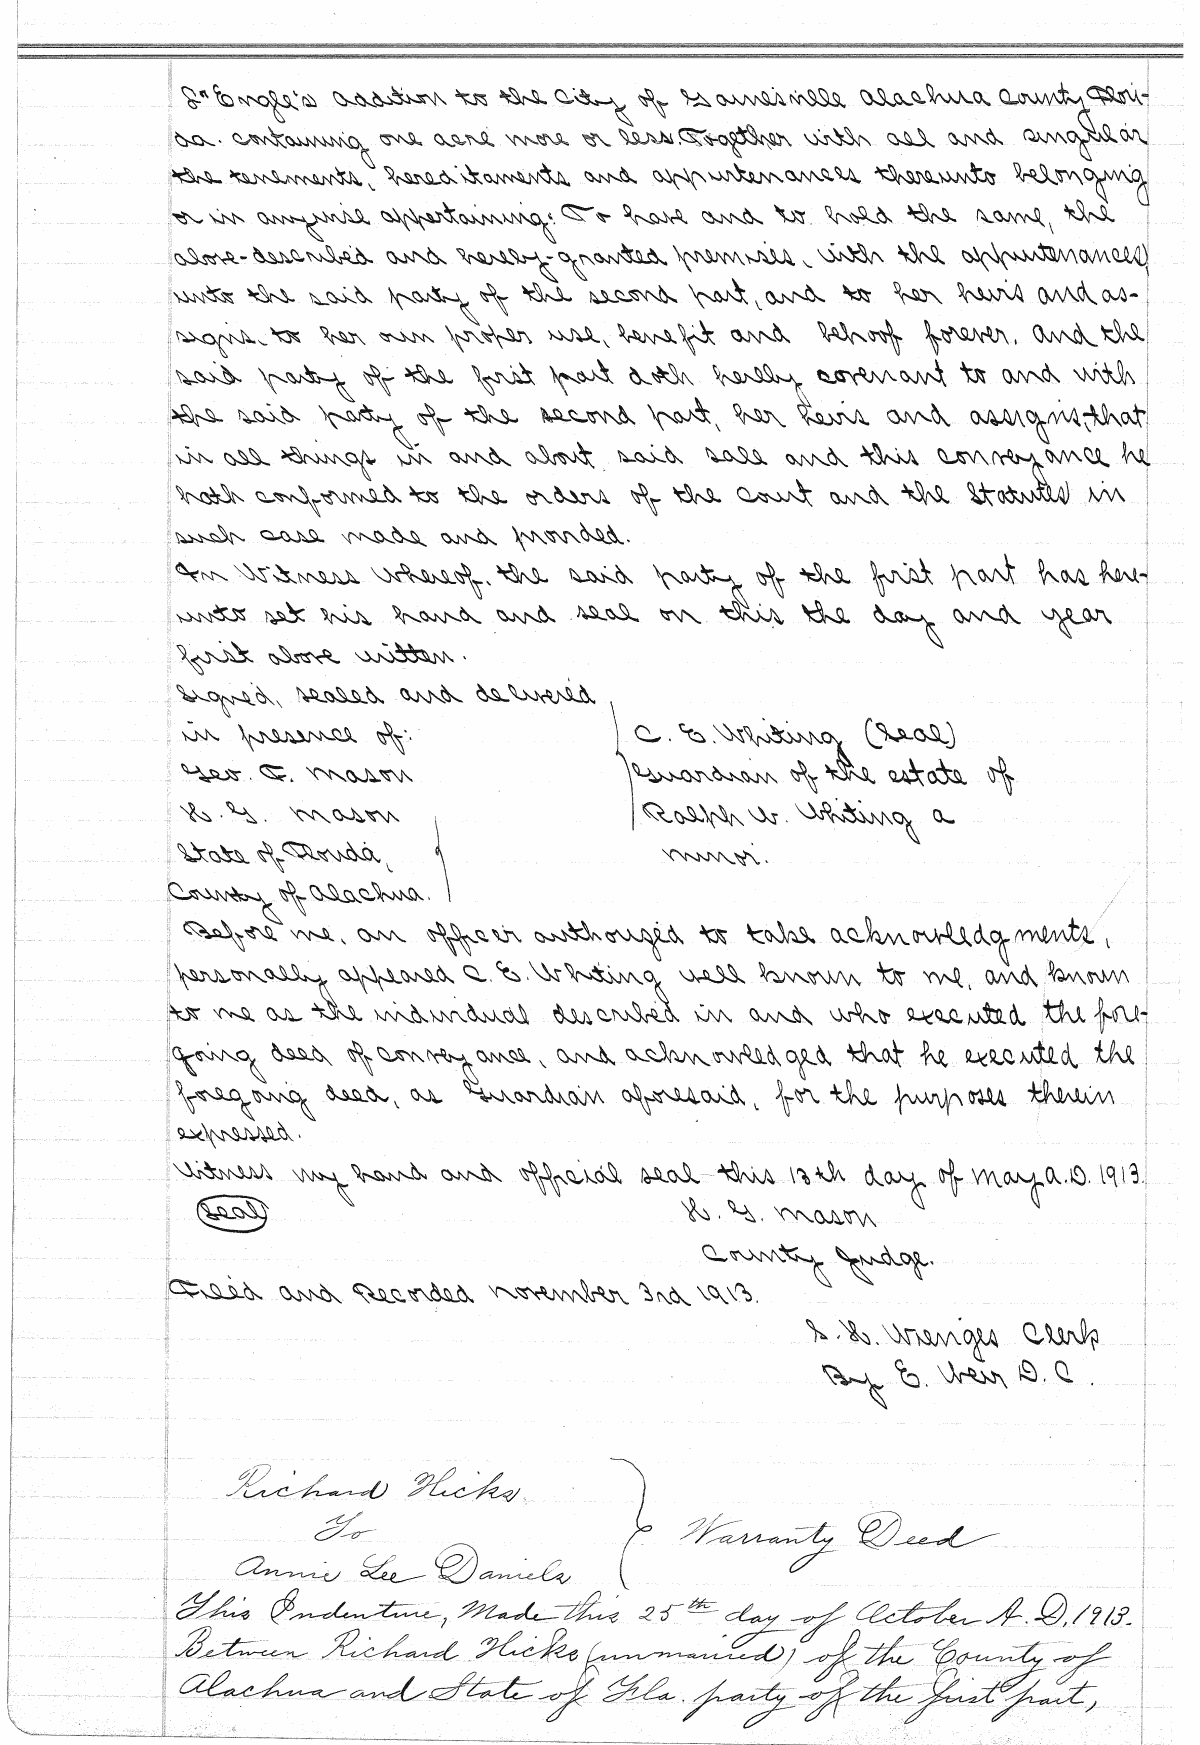 Engle's addition to the City of Gainesville Alachua County Flori-
da. containing one acre more or less. Together with all and singular
the tenements, hereditaments and appurtenances thereunto belonging
or in anywise appertaining: To have and to hold the same, the
above-described and hereby-granted premises, with the appurtenances,
unto the said party of the second part, and to her heirs and as-
signs, to her own proper use, benefit and behoof forever. And the
said party of the first part doth hereby covenant to and with
the said party of the second part, her heirs and assigns, that
in all things in and about said sale and this conveyance he
hath conformed to the orders of the Court and the Statutes in
such case made and provided.
In Witness Whereof, the said party of the first part has here-
unto set his hand and seal on this the day and year
first above written.
Signed, sealed and delivered
in presence of:
C. E. Whiting (Seal)
Geo. F. Mason
Guardian of the estate of
H. G. Mason
Ralph W. Whiting a
State of Florida,
minor.
County of Alachua.
Before me, an officer authorized to take acknowledgments,
personally appeared C. E. Whiting well known to me, and known
to me as the individual described in and who executed the fore-
going deed of conveyance, and acknowledged that he executed the
foregoing deed, as Guardian aforesaid, for the purposes therein
expressed.
Witness my hand and official seal this 13th day of May A.D. 1913.
Seal
H. G. Mason
County Judge.
Filed and Recorded November 3rd 1913.
S. H. Wienges Clerk
By E. Weir D. C.
Richard Hicks
To
Warranty Deed
Annie Lee Daniels
This Indenture, Made this 25th day of October A. D. 1913.
Between Richard Hicks (unmarried) of the County of
Alachua and State of Fla. party of the first part,